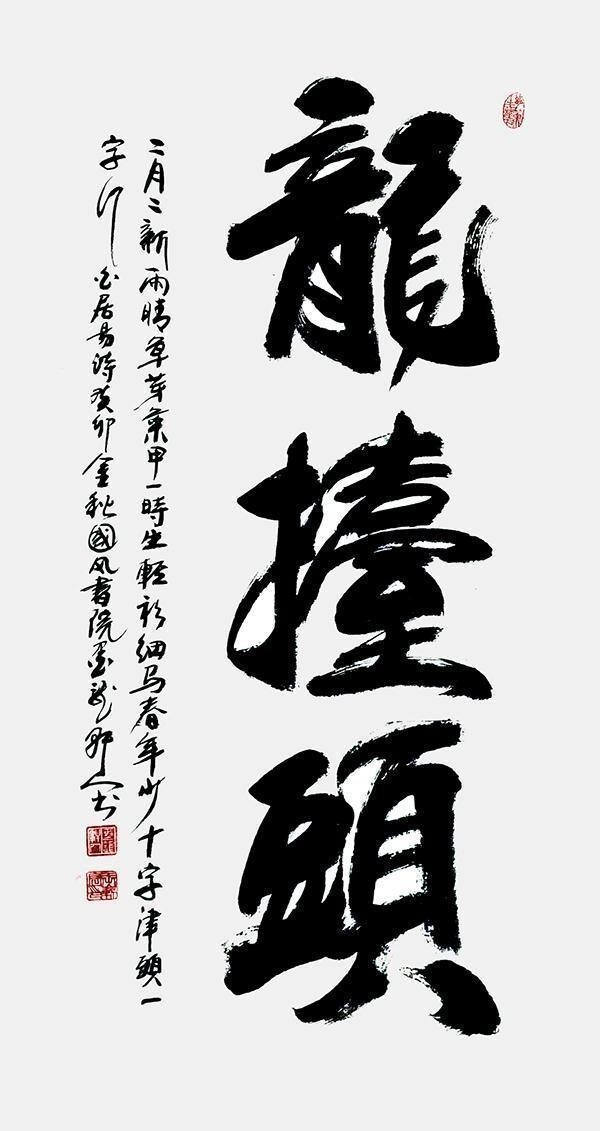 龍擡頭
二月二新雨晴草芽菜甲一時生輕衫細马春年少十字津頭一
字行白居易诗癸卯金秋國风書院墨龙人书